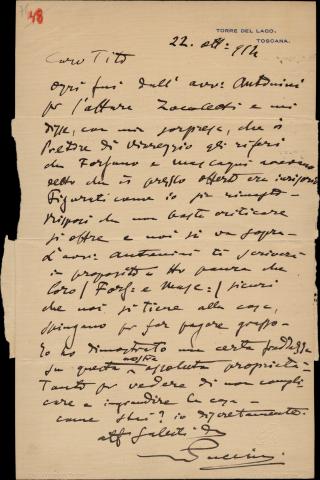 48
TORRE DEL LAGO.
TOSCANA.
22. ott: 914
Caro Tito
Oggi fui dall' avv: Antonini
per l'affare Zoccoletti e mi
disse, con mia sorpresa, che il
Pretore di Viareggio gli riferì
che Forzano e Mascagni
detto che il prezzo offerto era
Figurati come io sia rimasto
che non basta criticare
si offre e noi si va sopra
L'avv: Antonini ti scriverà
in proposito Ho paura che
loro/ Forz: e Masc:/ sicuri
che noi si tiene alla cosa,
spingano per far pagare grosso
Io ho dimostrato una certa freddezza
su questa nostra assoluta proprietà
Tanto per vedere di non compli
care e ingrandire la cosa
come stai? io discretamente.
aff saluti da
Puccini